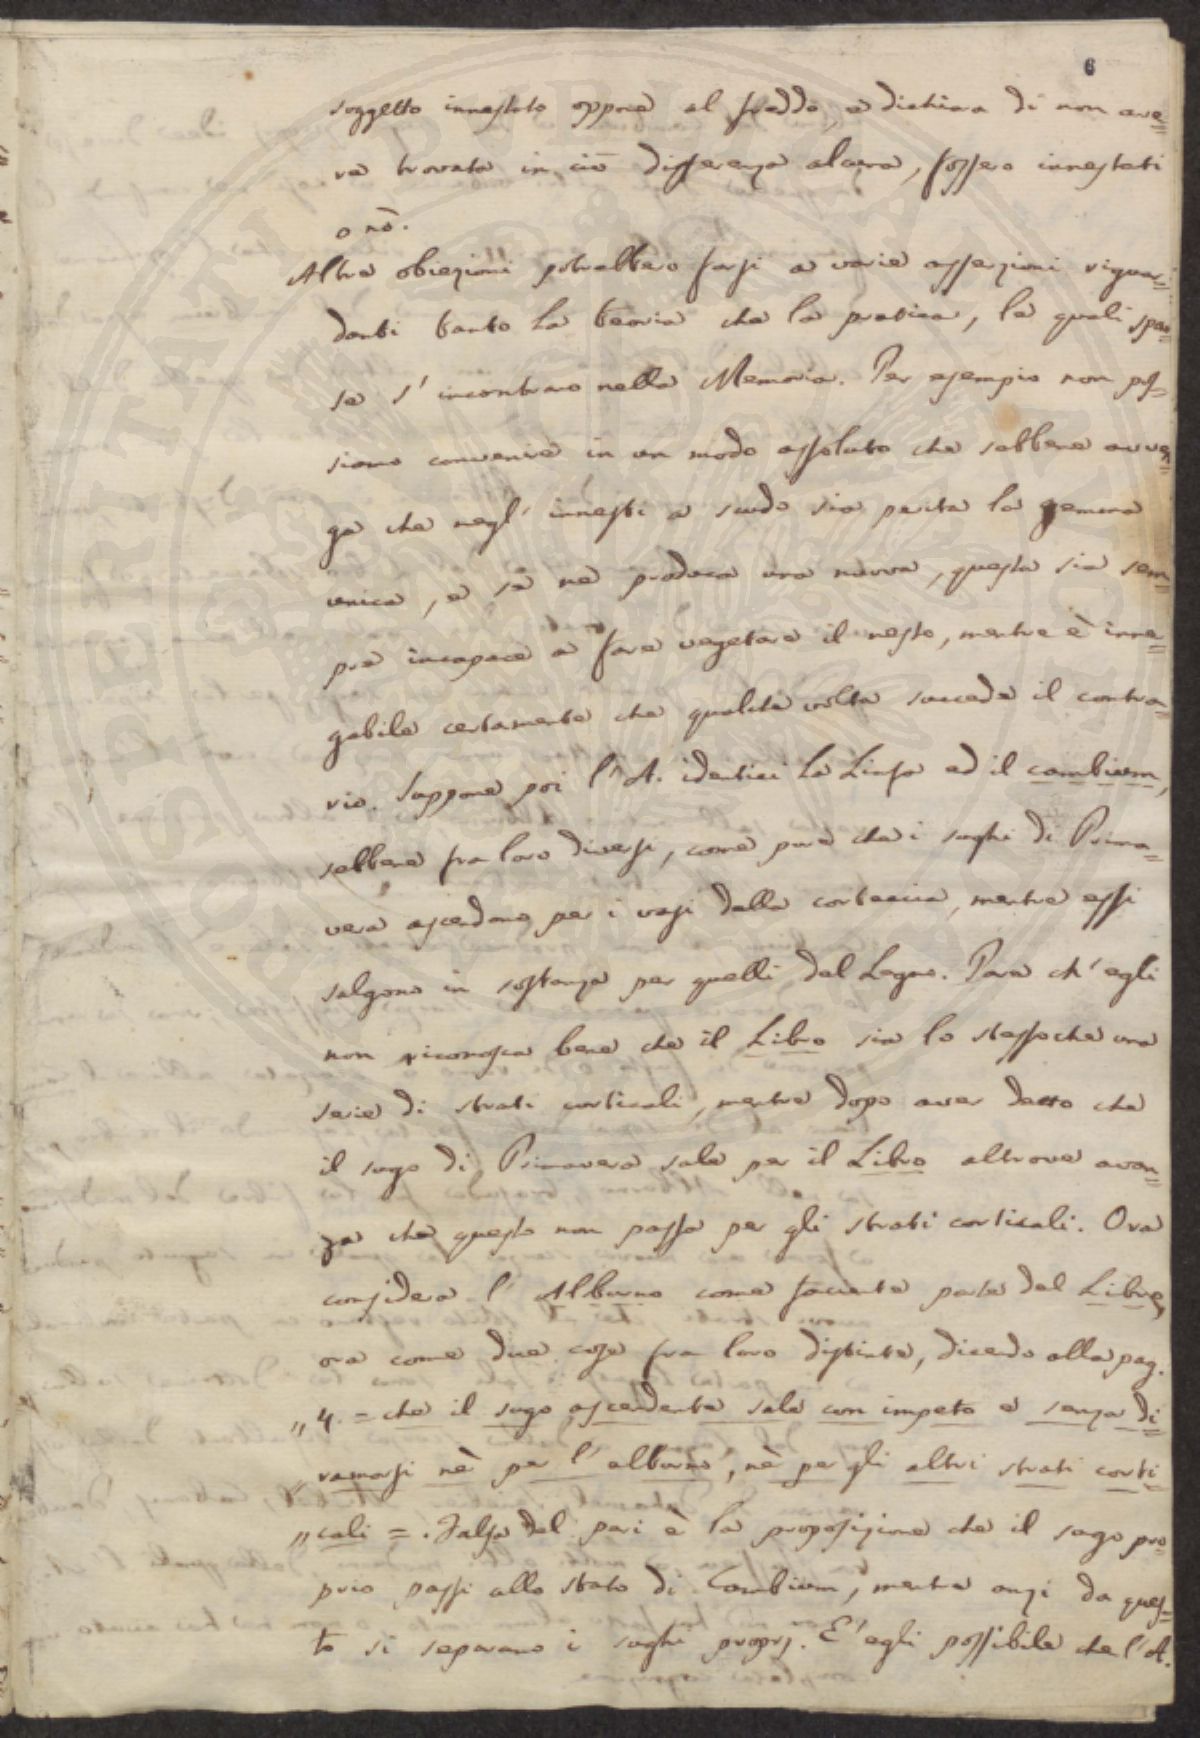 6
soggetto innestato oppone al freddo, e dichiara di non ave=
re trovata in ciò differenza alcuna, fossero innestati
o nò.
Altre obiezioni potrebbero farsi a varie asserzioni riguar=
danti tanto la teoria che la pratica, le quali spar=
se s' incontrano nella Memoria. Per esempio non pos=
siamo convenire in un modo assoluto che sebbene avven=
ga che negl' innesti a scudo sia perita la gemma
unica, e se ne produca una nuova, questa sia sem=
pre incapace a fare vegetare il nesto, mentre è inne=
gabile certamente che qualche volta succede il contra=
rio. Suppone poi l' A. identici la Linfa ed il cambium,
sebbene fra loro diversi, come pure che i sughi di Prima=
vera ascendono per i vasi della corteccia, mentre essi
salgono in sostanza per quelli del Legno. Pare ch' egli
non riconosca bene che il Libro sia lo stesso che una
serie di strati corticali, mentre dopo aver detto che
il sugo di Primavera sale per il Libro altrove avan=
za che questo non passa per gli strati corticali. Ora
considera l' Alburno come faciente parte del Libro,
ora come due cose fra loro distinte, dicendo alla pag.
„ 4. = che il sugo ascendente sale con impeto e senza di=
„ ramarsi nè per l' alburno, nè per gli altri strati corti=
„ cali = . Falsa del pari è la proposizione che il sugo pro=
prio passi allo stato di Cambium, mentre anzi da ques=
to si separano i sughi proprj. E' egli possibile che l' A.